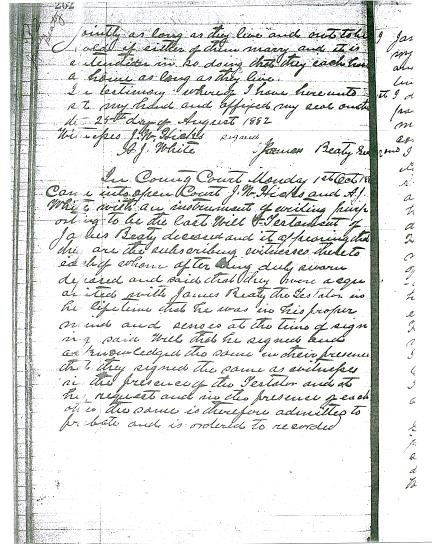 202
Beaty
jointly as long as they live and not to be
sold if either of them marry and it is
intention in so doing that they each have
a home as long as they live.
In testimony whereof I have hereunto
set my hand and affixed my seal on this
the 25th day of August 1882
Witnesses J. W. Hicks signed
A. J. White James Beaty
In County Court Monday 1st Oct 188
Came into open Court J. W. Hicks and A. J.
White with an instrument of writing purp
orting to be the last Will & Testament of
James Beaty deceased and it appearing that
they are the subscribing witnesses thereto
each of whom after being duly sworn
deposed and said that they were acqu
ainted with James Beaty the Testator in
his lifetime that he was in his proper
mind and senses at the time of sign
ing said Will that he signed and
acknowledged the same in their presence
that they signed the same as witnesses
in the presence of the Testator and at
his request and in the presence of each
other the same is therefore admitted to
probate and is ordered to recorded